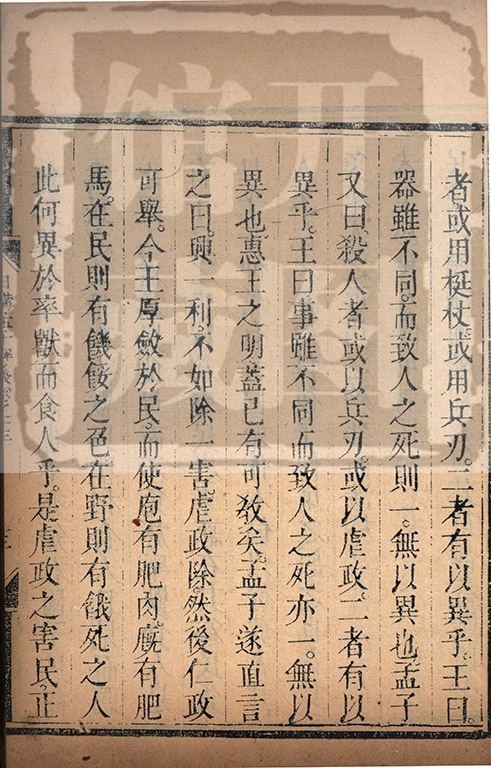 者。或用梃杖。或用兵刃。二者有以異乎。王曰。
器雖不同。而致人之死則一。無以異也。孟子
又曰。殺人者或以兵刃。或以虐政。二者有以
異乎。王曰事雖不同而致人之死亦一。無以
異也。惠王之明。蓋已有可敎矣。孟子遂直言
之曰。興一利。不如除一害。虐政除然後仁政
可舉。今王厚斂於民。而使庖有肥肉。廐有肥
馬。在民則有饑餒之色。在野則有餓死之人
此何異於率獸而食人乎。是虐政之害民。正